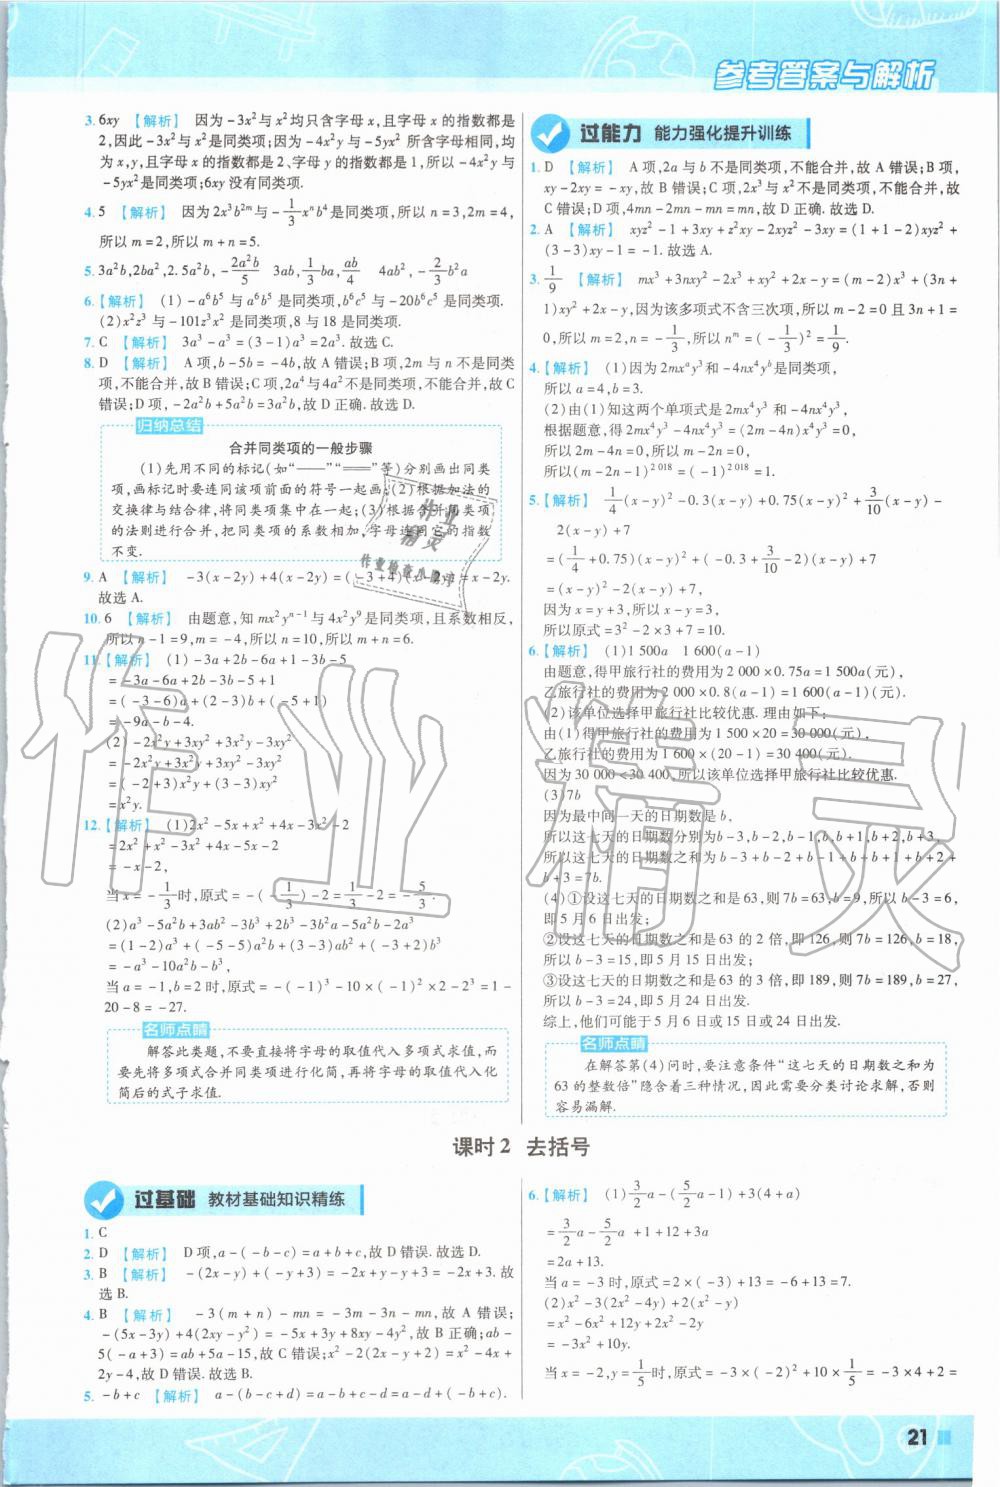 参考答案与解析
3. 6xy 【解析】 因为-3x²与x²均只含字母x,且字母x的指数都是
2,因此-3x²与x²是同类项;因为-4x²y与-5yx²所含字母相同,均
为x,y,且字母x的指数都是2,字母y的指数都是1,所以-4x²y与
-5yx²是同类项;6xy没有同类项.
4. 5 【解析】 因为2x³b²ᵐ与-1/3xⁿb⁴是同类项,所以n=3,2m=4,
所以m=2,所以m+n=5.
5. 3a²b,2ba²,2.5a²b,-2a²b/5 3ab,1/3ba,ab/4 4ab²,-2/3b²a
6.【解析】 (1)-a⁶b⁵与a⁶b⁵是同类项,b⁶c⁵与-20b⁶c⁵是同类项.
(2)x²z³与-101z³x²是同类项,8与18是同类项.
7. C 【解析】 3a³-a³=(3-1)a³=2a³.故选C.
8. D 【解析】 A项,b-5b=-4b,故A错误;B项,2m与n不是同类
项,不能合并,故B错误;C项,2a⁴与4a²不是同类项,不能合并,故C
错误;D项,-2a²b+5a²b=3a²b,故D正确.故选D.
归纳总结
合并同类项的一般步骤
(1)先用不同的标记(如“——”“══”等)分别画出同类
项,画标记时要连同该项前面的符号一起画;(2)根据加法的
交换律与结合律,将同类项集中在一起;(3)根据合并同类项
的法则进行合并,把同类项的系数相加,字母连同它的指数
不变.
9. A 【解析】 -3(x-2y)+4(x-2y)=(-3+4)(x-2y)=x-2y.
故选A.
10. 6 【解析】 由题意,知mx²yⁿ⁻¹与4x²y⁹是同类项,且系数相反,
所以n-1=9,m=-4,所以n=10,所以m+n=6.
11.【解析】 (1)-3a+2b-6a+1-3b-5
=-3a-6a+2b-3b-5+1
=(-3-6)a+(2-3)b+(-5+1)
=-9a-b-4.
(2)-2x²y+3xy²+3x²y-3xy²
=-2x²y+3x²y+3xy²-3xy²
=(-2+3)x²y+(3-3)xy²
=x²y.
12.【解析】 (1)2x²-5x+x²+4x-3x²-2
=2x²+x²-3x²+4x-5x-2
=-x-2,
当x=-1/3时,原式=-(-1/3)-2=1/3-2=-5/3.
(2)a³-5a²b+3ab²-3b³+2b³-3b²a-5a²b-2a³
=(1-2)a³+(-5-5)a²b+(3-3)ab²+(-3+2)b³
=-a³-10a²b-b³,
当a=-1,b=2时,原式=-(-1)³-10×(-1)²×2-2³=1-
20-8=-27.
名师点睛
解答此类题,不要直接将字母的取值代入多项式求值,而
要先将多项式合并同类项进行化简,再将字母的取值代入化
简后的式子求值.
过能力 能力强化提升训练
1. D 【解析】 A项,2a与b不是同类项,不能合并,故A错误;B项,
xy-2xy=-xy,故B错误;C项,2x³与x²不是同类项,不能合并,故
C错误;D项,4mn-2mn-mn=mn,故D正确.故选D.
2. A 【解析】 xyz²-1+3xy+z²xy-2xyz²-3xy=(1+1-2)xyz²+
(3-3)xy-1=-1.故选A.
3. 1/9 【解析】 mx³+3nxy²-2x³+xy²+2x-y=(m-2)x³+(3n+
1)xy²+2x-y,因为该多项式不含三次项,所以m-2=0且3n+1=
0,所以m=2,n=-1/3,所以nᵐ=(-1/3)²=1/9.
4.【解析】 (1)因为2mxᵃy³和-4nx⁴yᵇ是同类项,
所以a=4,b=3.
(2)由(1)知这两个单项式是2mx⁴y³和-4nx⁴y³,
根据题意,得2mx⁴y³-4nx⁴y³=(2m-4n)x⁴y³=0,
所以2m-4n=0,所以m-2n=0,
所以(m-2n-1)²⁰¹⁸=(-1)²⁰¹⁸=1.
5.【解析】 1/4(x-y)²-0.3(x-y)+0.75(x-y)²+3/10(x-y)-
2(x-y)+7
=(1/4+0.75)(x-y)²+(-0.3+3/10-2)(x-y)+7
=(x-y)²-2(x-y)+7,
因为x=y+3,所以x-y=3,
所以原式=3²-2×3+7=10.
6.【解析】 (1)1 500a 1 600(a-1)
由题意,得甲旅行社的费用为2 000×0.75a=1 500a(元),
乙旅行社的费用为2 000×0.8(a-1)=1 600(a-1)(元).
(2)该单位选择甲旅行社比较优惠.理由如下:
由(1)得甲旅行社的费用为1 500×20=30 000(元),
乙旅行社的费用为1 600×(20-1)=30 400(元).
因为30 000<30 400,所以该单位选择甲旅行社比较优惠.
(3)7b
因为最中间一天的日期数是b,
所以这七天的日期数分别为b-3,b-2,b-1,b,b+1,b+2,b+3,
所以这七天的日期数之和为b-3+b-2+b-1+b+b+1+b+2+
b+3=7b.
(4)①设这七天的日期数之和是63,则7b=63,b=9,所以b-3=6,
即5月6日出发;
②设这七天的日期数之和是63的2倍,即126,则7b=126,b=18,
所以b-3=15,即5月15日出发;
③设这七天的日期数之和是63的3倍,即189,则7b=189,b=27,
所以b-3=24,即5月24日出发.
综上,他们可能于5月6日或15日或24日出发.
名师点睛
在解答第(4)问时,要注意条件“这七天的日期数之和为
63的整数倍”隐含着三种情况,因此需要分类讨论求解,否则
容易漏解.
课时2 去括号
过基础 教材基础知识精练
1. C
2. D 【解析】 D项,a-(-b-c)=a+b+c,故D错误.故选D.
3. B 【解析】 -(2x-y)+(-y+3)=-2x+y-y+3=-2x+3.故
选B.
4. B 【解析】 -3(m+n)-mn=-3m-3n-mn,故A错误;
-(5x-3y)+4(2xy-y²)=-5x+3y+8xy-4y²,故B正确;ab-
5(-a+3)=ab+5a-15,故C错误;x²-2(2x-y+2)=x²-4x+
2y-4,故D错误.故选B.
5. -b+c 【解析】 a-(b-c+d)=a-b+c-d=a-d+(-b+c).
6.【解析】 (1)3/2a-(5/2a-1)+3(4+a)
=3/2a-5/2a+1+12+3a
=2a+13.
当a=-3时,原式=2×(-3)+13=-6+13=7.
(2)x²-3(2x²-4y)+2(x²-y)
=x²-6x²+12y+2x²-2y
=-3x²+10y.
当x=-2,y=1/5时,原式=-3×(-2)²+10×1/5=-3×4+2=
21
作业精灵
作业精灵
作业检查小程序